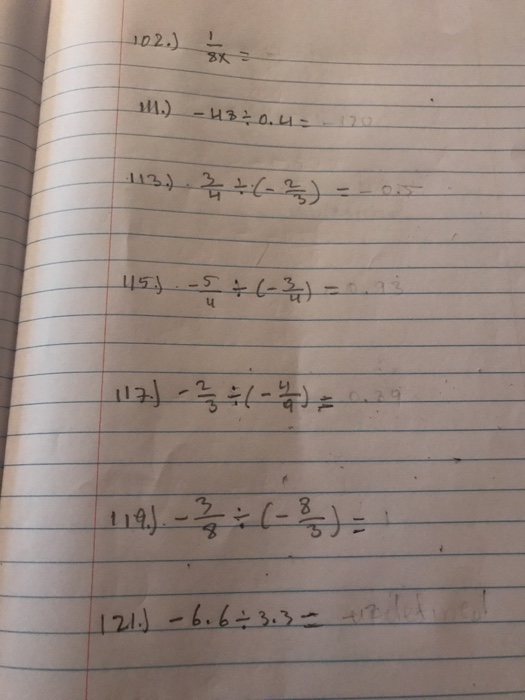 102.) 1/8x =
111.) -48÷0.4= -120
113.) 3/4 ÷(-2/3) = -0.5
115.) -5/4 ÷(-3/4) = 0.93
117.) -2/3 ÷(-4/9) =
119.) -3/8 ÷ (-8/3) = 1
121.) -6.6÷3.3= undefined